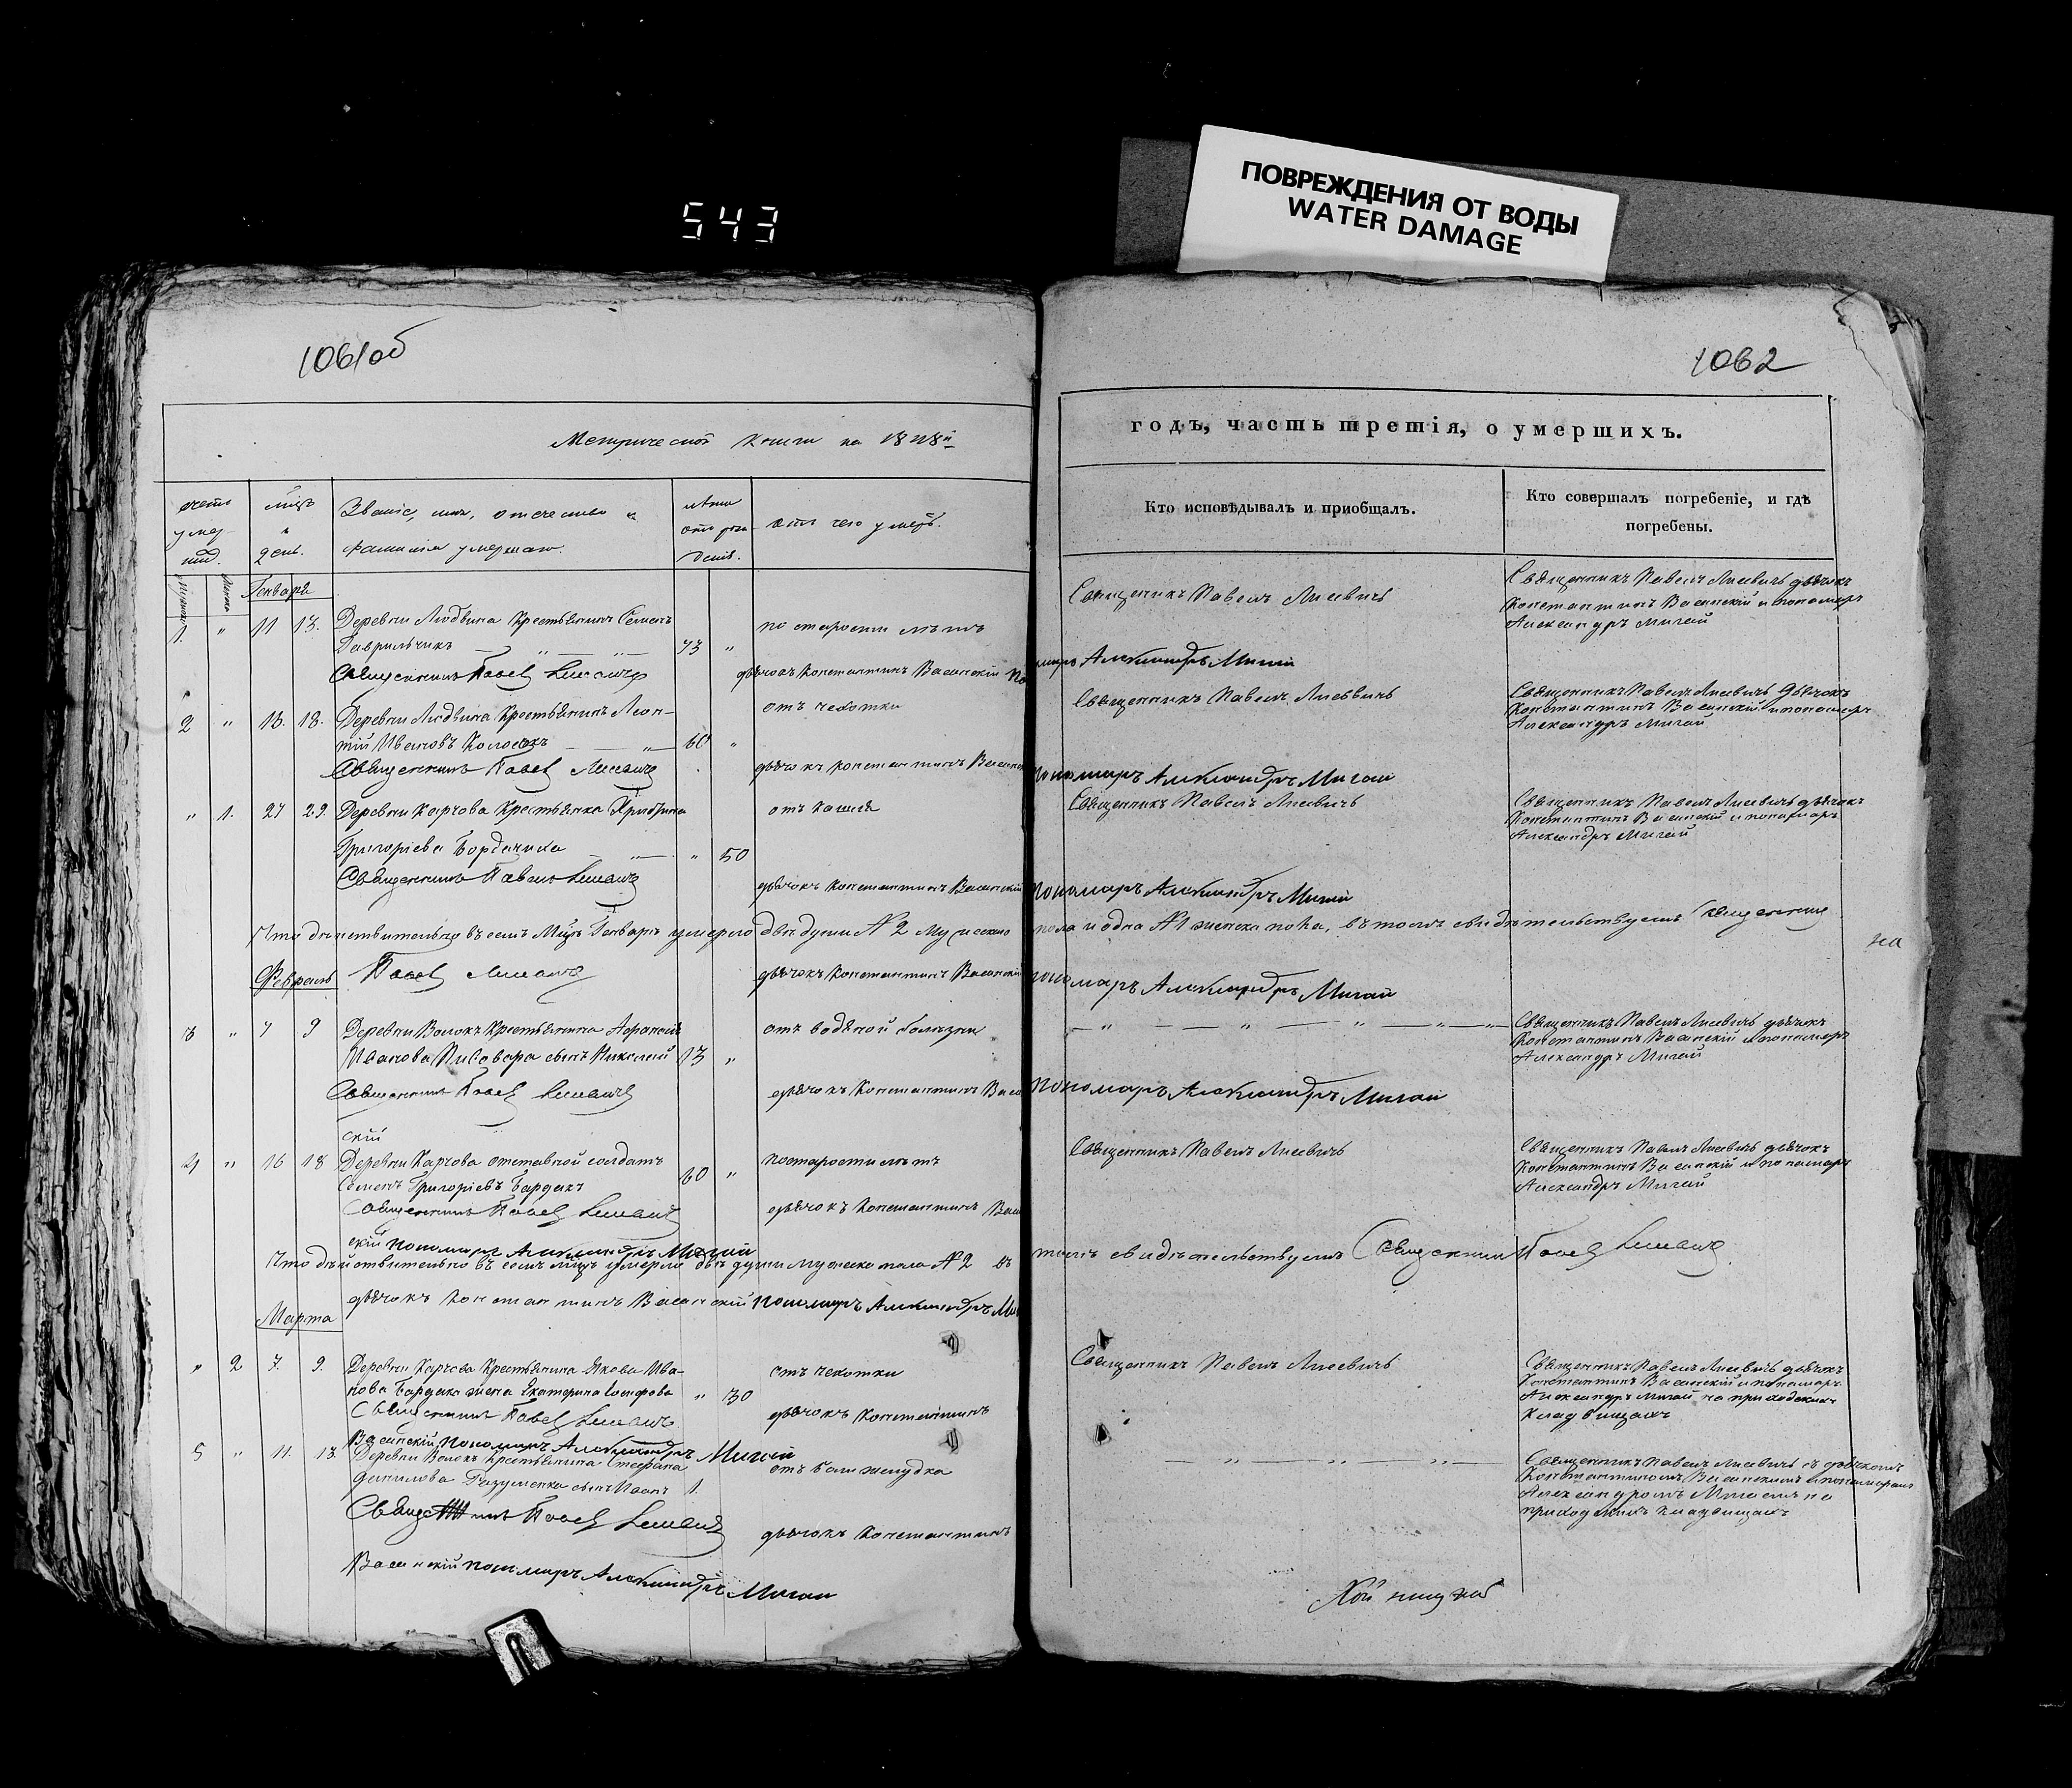 543
ПОВРЕЖДЕНИЯ ОТ ВОДЫ
WATER DAMAGE
1061об
1062
Метрической книги на 1848й
годъ, часть третія, о умершихъ.
счетъ умер-
мѣць и день.
Званіе, имя, отечество и фамилія умершаго.
Лѣта отъ рож-денія.
отъ чего умеръ.
Кто исповѣдывалъ и пріобщалъ.
Кто совершалъ погребеніе, и гдѣ
погребены.
Генваря
1. " 11 13. Деревни Людвина Крестьянинъ Семенъ
Гаврильчикъ 73 "
по старости лѣтъ
Священникъ Павелъ Лисевичъ
Священникъ Павелъ Лисевичъ дьячокъ
Константинъ Васинскій и пономарь
Александръ Мигай
Священникъ Павел Лисевичъ дьячокъ Константинъ Васинскій Пономарь Александръ Мигай
2 " 16. 18. Деревни Людвина Крестьянинъ Леон-
тій Ивановъ Колосокъ 60 "
отъ чехотки
Священникъ Павелъ Лисевичъ
Священникъ Павелъ Лисевичъ дьячокъ
Константинъ Васинскій и пономарь
Александръ Мигай
Священникъ Павел Лисевичъ дьячокъ Константинъ Пономарь Александръ Мигай
" 1. 27 29. Деревни Карчова Крестьянка
Григоріева " 50
отъ кашля
Священникъ Павелъ Лисевичъ
Священникъ Павелъ Лисевичъ дьячокъ
Константинъ Васинскій и пономарь
Александръ Мигай
Священникъ Павелъ Лисевичъ дьячокъ Константинъ Васинскій Пономарь Александръ Мигай
Что дѣйствительно въ семъ Мцѣ Генварѣ умерло двѣ души № 2 мужеско пола и одна № 1 женска пола, въ томъ свидѣтельствуемъ Священникъ
Павел Лисевичъ дьячокъ Константинъ Васинскій пономарь Александръ Мигай
Февраль
3 " 7 9 Деревни Волокъ Крестьянина Афанасія
Иванова Пивовара сынъ Николай 13 "
отъ водяной болѣзни
Священникъ Павелъ Лисевичъ дьячокъ
Константинъ Васинскій и пономарь
Александръ Мигай
Священникъ Павел Лисевичъ дьячокъ Константинъ Васин Пономарь Александръ Мигай
скій
4 " 16 18 Деревни Карчова отставной солдатъ
Семенъ Григоріевъ Бардакъ 60 "
по старости лѣтъ
Священникъ Павелъ Лисевичъ
Священникъ Павелъ Лисевичъ дьячокъ
Константинъ Васинскій и пономарь
Александръ Мигай
Священникъ Павел Лисевичъ дьячокъ Константинъ Васин
скій пономарь Александръ Мигай
Что дѣйствительно въ семъ мцѣ умерло двѣ души мужеско пола № 2 въ томъ свидѣтельствуемъ Священникъ Павел Лисевичъ
дьячокъ Константинъ Васинскій пономарь Александръ
Марта
" 2 7. 9. Деревни Карчова Крестьянина Якова Ива-
нова Бардака жена Екатерина Іосифова " 30
отъ чехотки
Священникъ Павелъ Лисевичъ
Священникъ Павелъ Лисевичъ дьячокъ
Константинъ Васинскій и пономарь
Александръ Мигай на приходскихъ
кладбищахъ
Священникъ Павел Лисевичъ дьячокъ Константинъ
Васинскій пономарь Александръ Мигай
5 " 11. 13. Деревни Волокъ Крестьянина Стефана
Данилова сынъ Иванъ 1.
отъ боли желудка
Священникъ Павелъ Лисевичъ съ дьячкомъ
Константиномъ Васинскимъ и пономаремъ
Александромъ Мигаемъ на
приходскихъ кладбищахъ
Павел Лисевичъ дьячокъ Константинъ
Васинскій пономарь Александръ Мигай